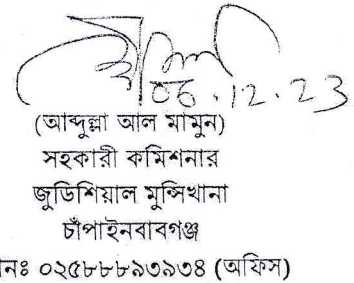 06.12.23
(আব্দুল্লা আল মামুন)
সহকারী কমিশনার
জুডিশিয়াল মুন্সিখানা
চাঁপাইনবাবগঞ্জ
নঃ ০২৫৮৮৮৯৩৯৩৪ (অফিস)